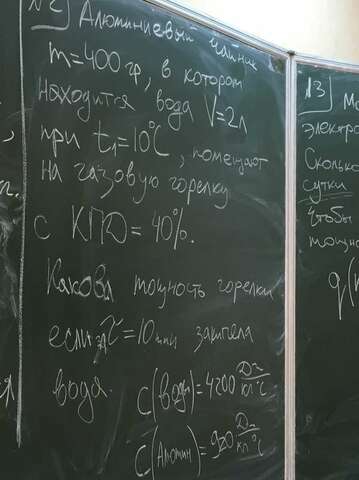 №2) Алюминиевый чайник
m=400гр, в котором
находится вода V=2л
при t₁=10°C, помещают
на газовую горелку
с КПД=40%.
Какова мощность горелки
если за τ=10мин закипела
вода.
C(воды)=4200 Дж/кг°C
C(Алюмин)=920 Дж/кг°C
№3)
электро
Сколько
сутки
чтобы
мощно